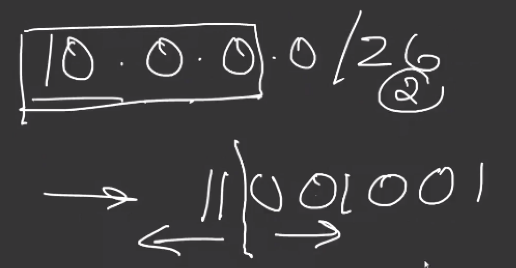 10.0.0.0/26
2
→ 11|001001